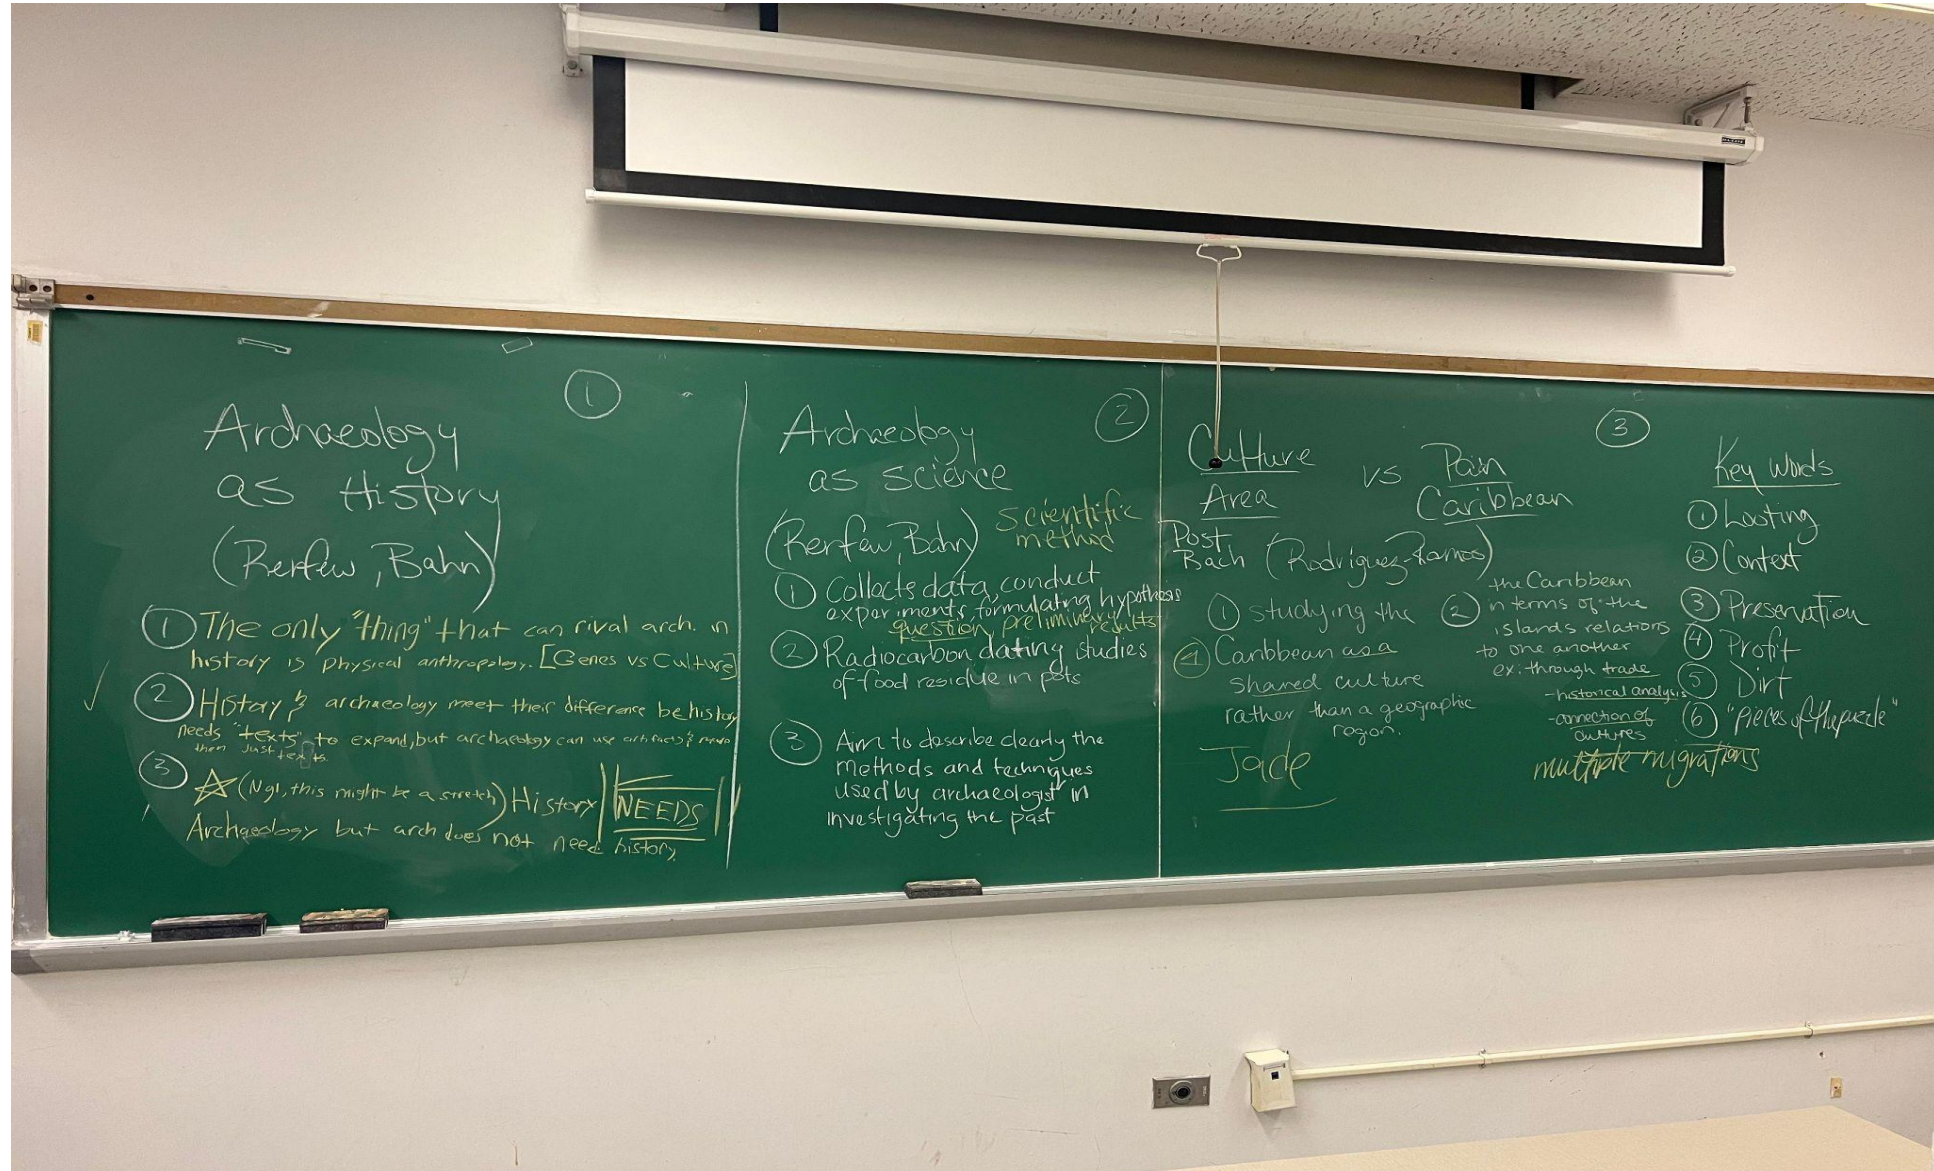 ①
Archaeology
as History
(Renfew, Bahn)
① The only "thing" that can rival arch. in
history is physical anthropology. [Genes vs Culture]
② History & archaeology meet their difference bc history
needs "texts" to expand, but archaeology can use artifacts & more
then just texts.
③ ☆ (Ngl, this might be a stretch) History NEEDS
Archaeology but arch does not need history.
②
Archaeology
as science
(Renfew, Bahn)
scientific
method
① Collects data, conduct
experiments, formulating hypothesis
question, preliminary results
② Radiocarbon dating studies
of food residue in pots
③ Aim to describe clearly the
methods and techniques
used by archaeologist in
investigating the past
③
Culture
Area
vs Pain
Caribbean
Post
Bach (Rodríguez-Ramos)
① studying the
Caribbean as a
shared culture
rather than a geographic
region.
Jade
② the Caribbean
in terms of the
islands relations
to one another
ex: through trade
-historical analysis
-connection of
cultures
multiple migrations
Key words
① Looting
② Context
③ Preservation
④ Profit
⑤ Dirt
⑥ "Pieces of the puzzle"